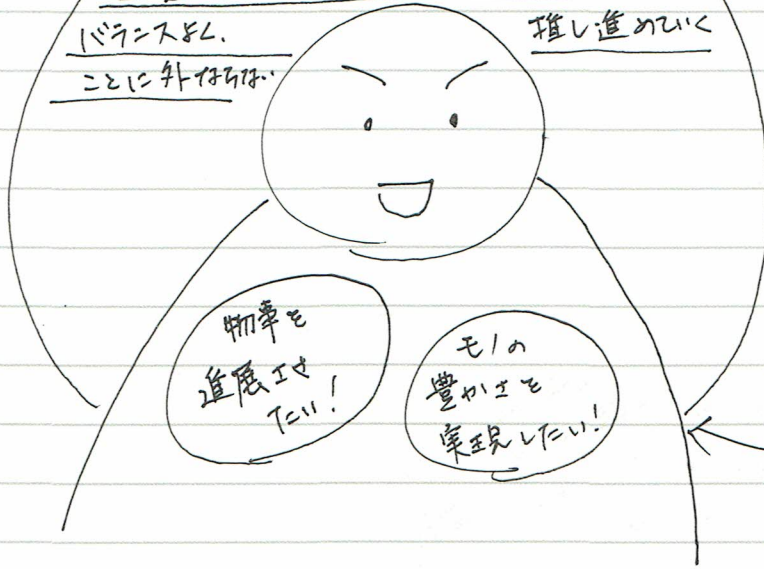 バランスよく、
ことに外ならない
推し進めていく
物事を
進展させ
たい!
モノの
豊かさを
実現したい!